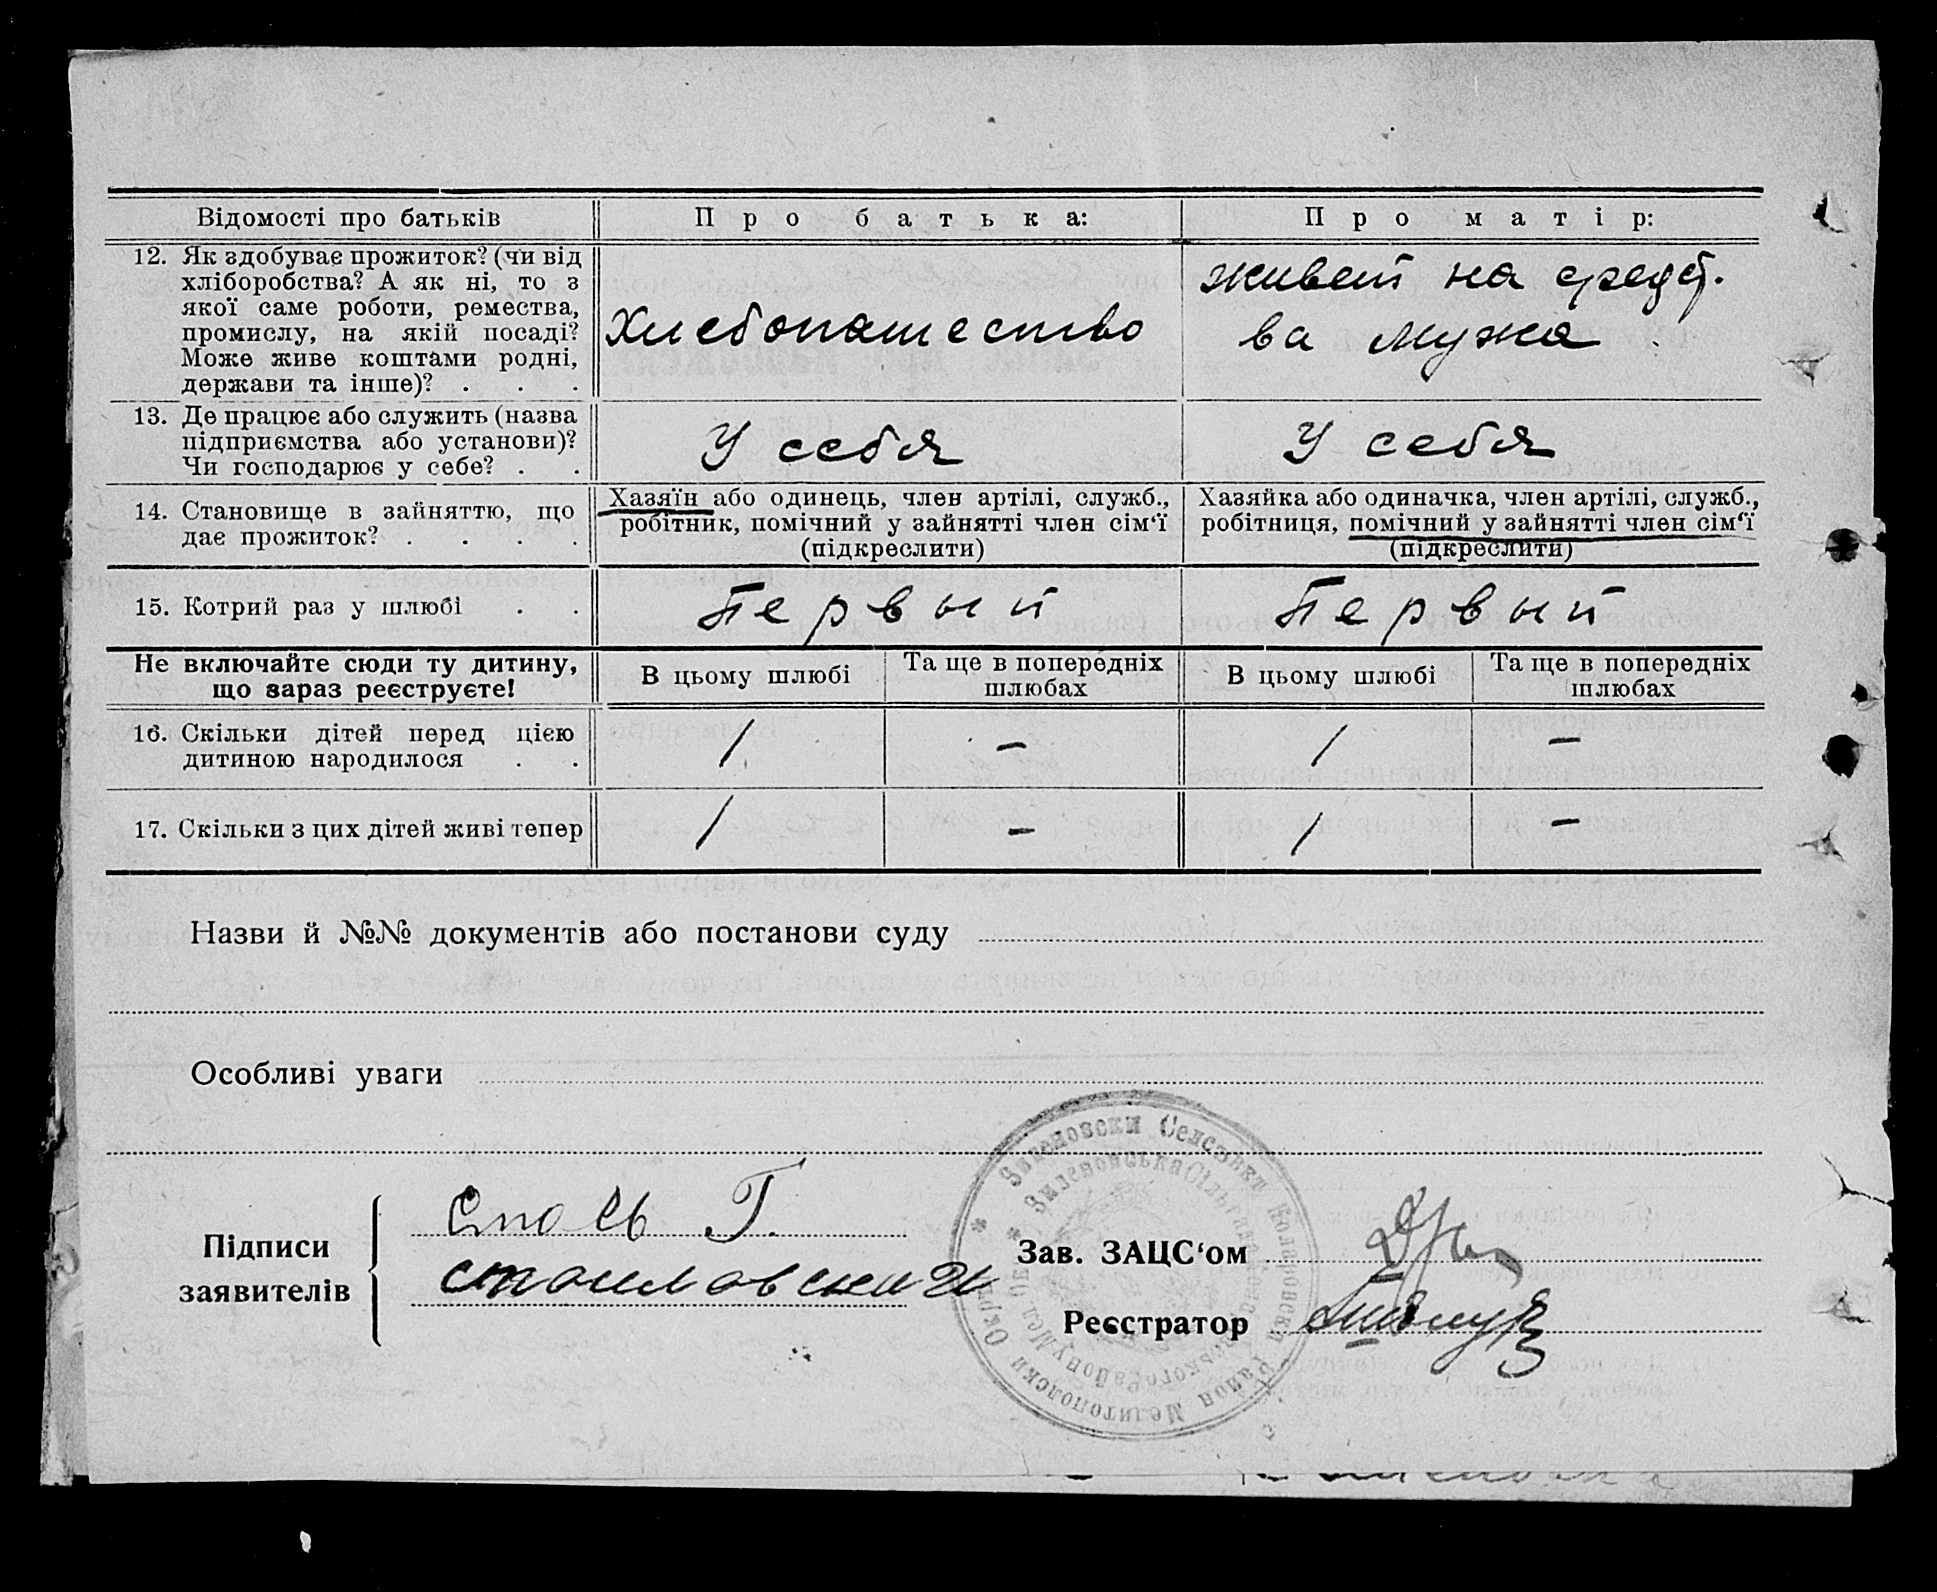 Відомості про батьків
Про батька:
Про матір:
12. Як здобуває прожиток? (чи від
хліборобства? А як ні, то з
якої саме роботи, ремества,
промислу, на якій посаді?
Може живе коштами родні,
держави та інше)? . . .
Хлебопашество
живет на средст-
ва мужа
13. Де працює або служить (назва
підприємства або установи)?
Чи господарює у себе? . .
У себя
У себя
14. Становище в зайняттю, що
дає прожиток? . . . .
Хазяїн або одинець, член артілі, служб.,
робітник, помічний у зайнятті член сім‘ї
(підкреслити)
Хазяйка або одиначка, член артілі, служб.,
робітниця, помічний у зайнятті член сім‘ї
(підкреслити)
15. Котрий раз у шлюбі . .
Первый
Первый
Не включайте сюди ту дитину,
що зараз реєструєте!
В цьому шлюбі
Та ще в попередніх
шлюбах
В цьому шлюбі
Та ще в попередніх
шлюбах
16. Скільки дітей перед цією
дитиною народилося . .
1
—
1
—
17. Скільки з цих дітей живі тепер
1
—
1
—
Назви й №№ документів або постанови суду
Особливі уваги
Підписи
заявителів
Г.
Зав. ЗАЦС‘ом
Реєстратор